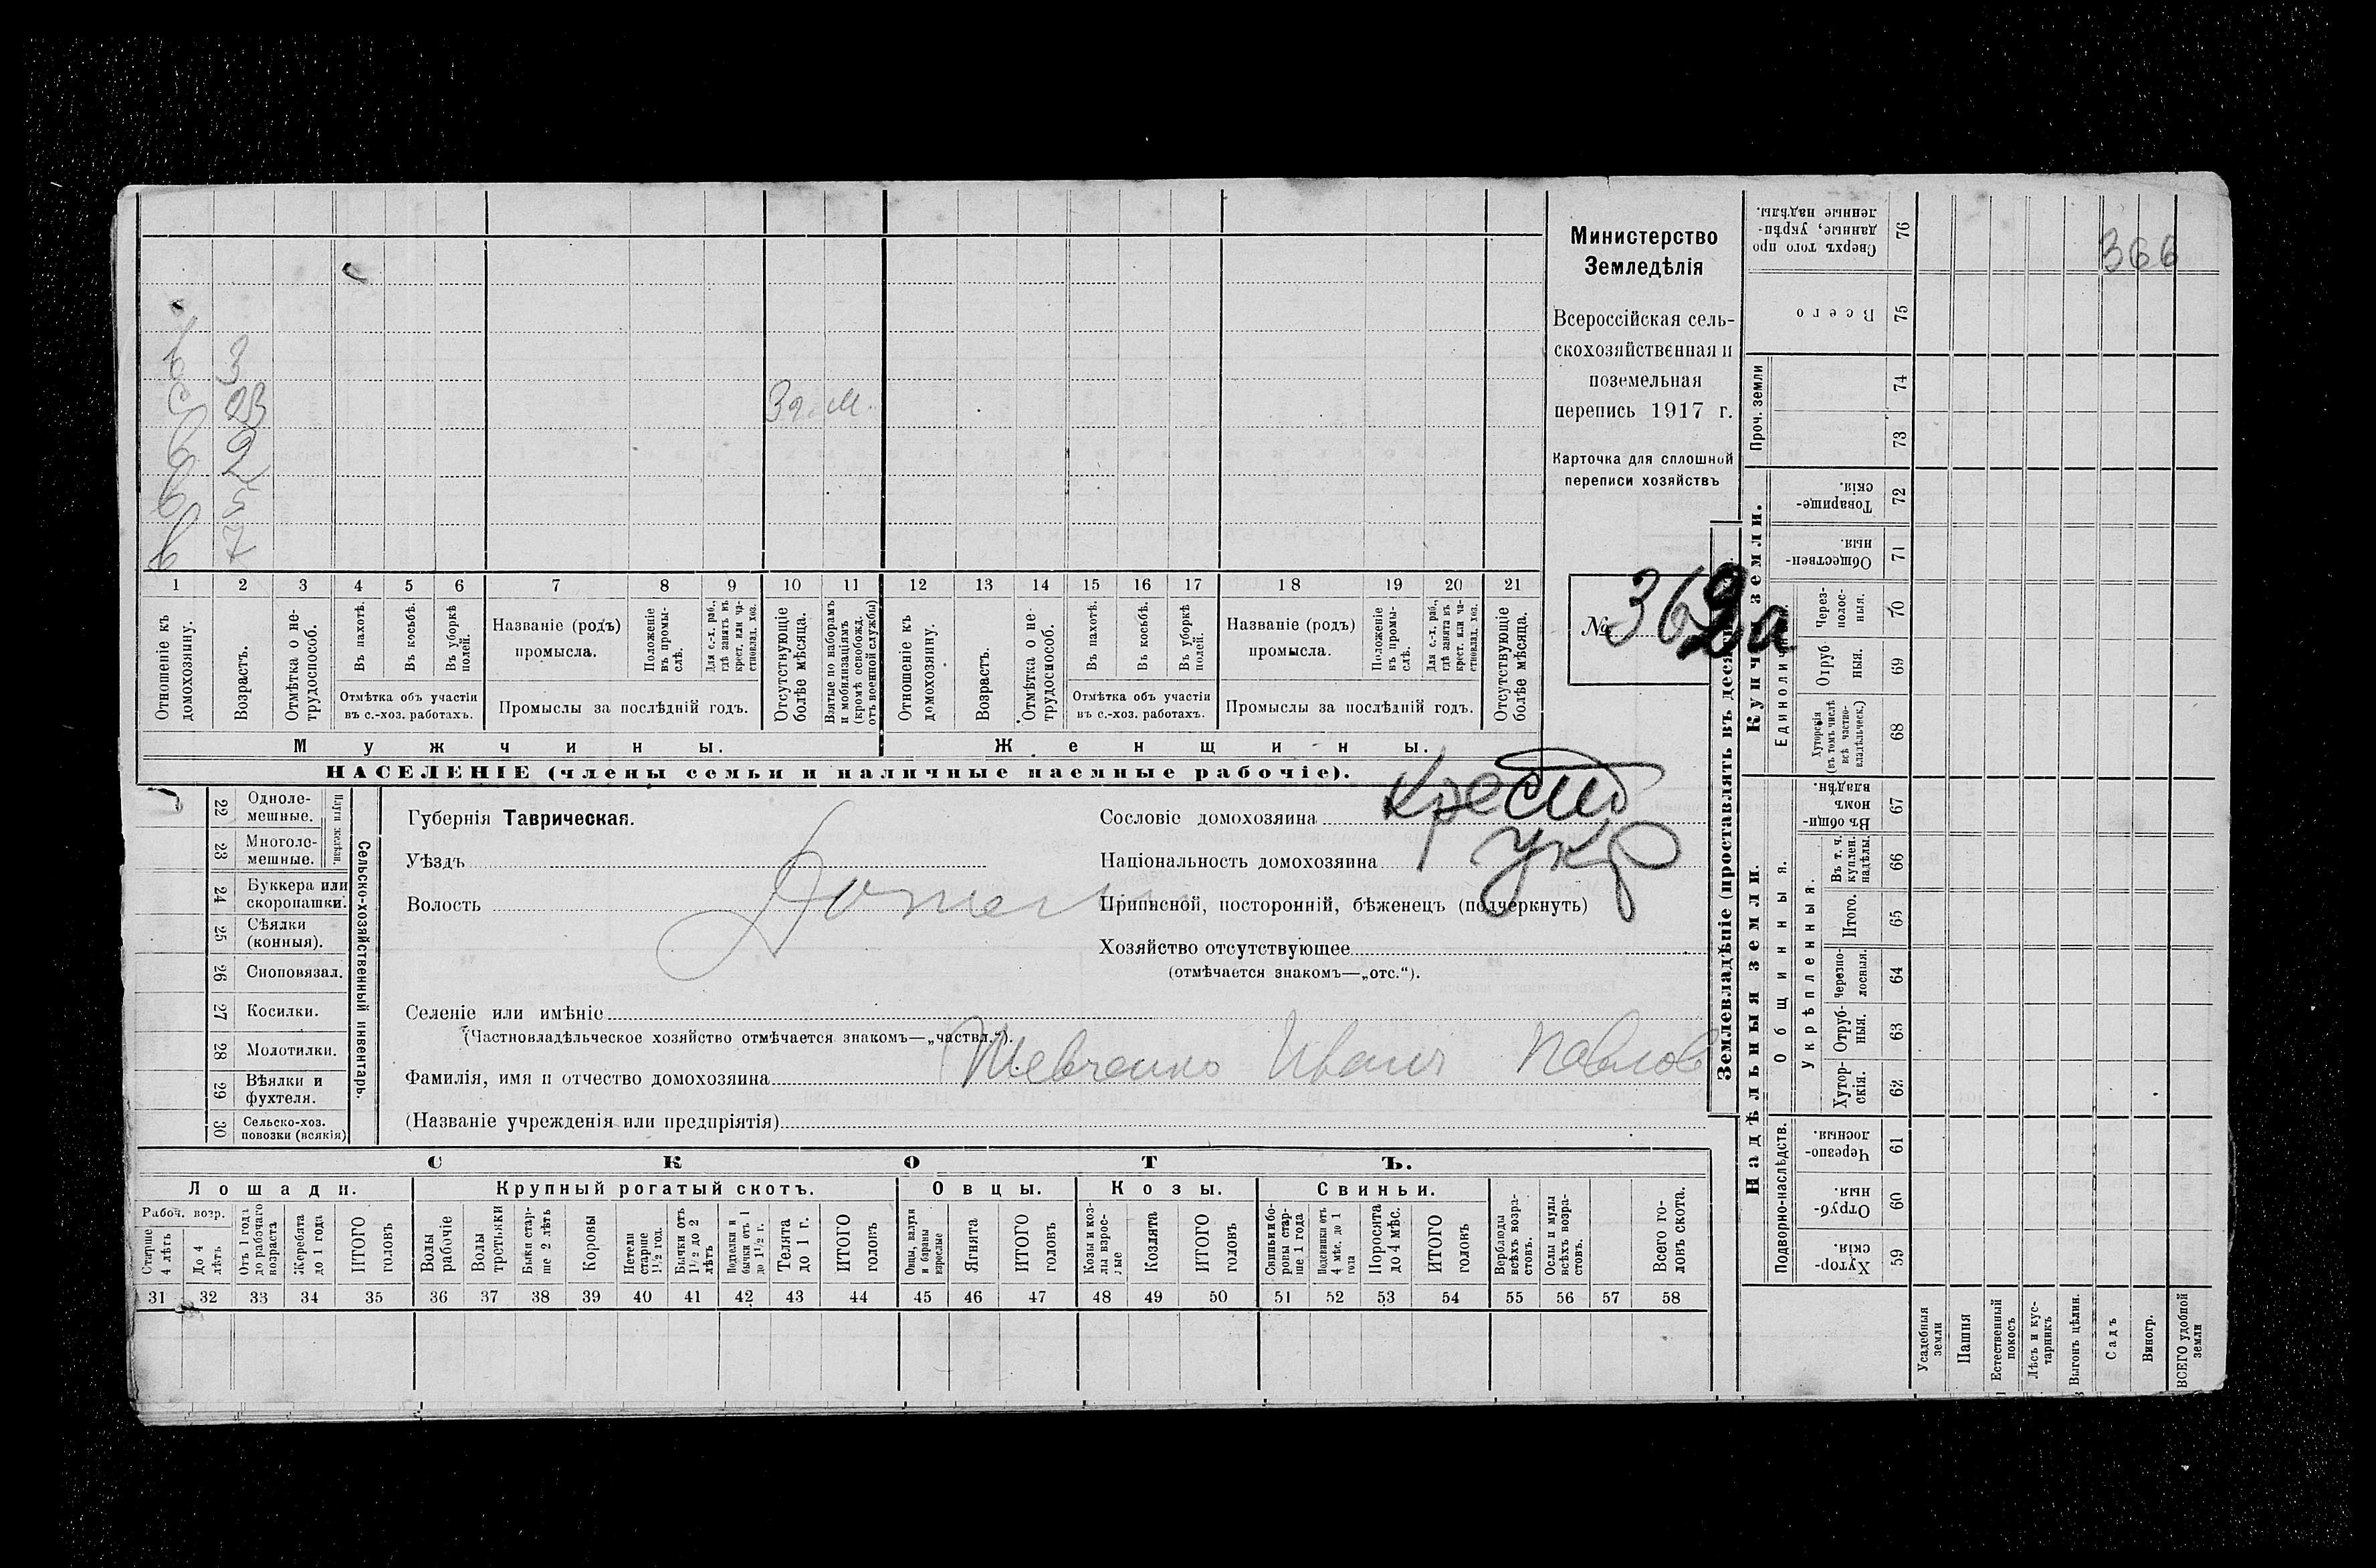 366
3
23 3 г. м.
2
5
7
1 2 3 4 5 6 7 8 9 10 11 12 13 14 15 16 17 18 19 20 21
Отношеніе къ домохозяину.
Возрастъ.
Отмѣтка о нетрудоспособ.
Въ пахотѣ.
Въ косьбѣ.
Въ уборкѣ полей.
Отмѣтка объ участіи
въ с.-хоз. работахъ.
Названіе (родъ)
промысла.
Положеніе въ промыслѣ.
Для с.-х. раб., гдѣ занятъ въ крест. или частновлад. хоз.
Промыслы за послѣдній годъ.
Отсутствующіе болѣе мѣсяца.
Взятые по наборамъ и мобилизаціямъ (кромѣ освобожд. отъ военной службы)
Отношеніе къ домохозяину.
Возрастъ.
Отмѣтка о нетрудоспособ.
Въ пахотѣ.
Въ косьбѣ.
Въ уборкѣ полей.
Отмѣтка объ участіи
въ с.-хоз. работахъ.
Названіе (родъ)
промысла.
Положеніе въ промыслѣ.
Для с.-х. раб., гдѣ занята въ крест. или частновлад. хоз.
Промыслы за послѣдній годъ.
Отсутствующіе болѣе мѣсяца.
Мужчины. Женщины.
НАСЕЛЕНІЕ (члены семьи и наличные наемные рабочіе).
Министерство
Земледѣлія
Всероссійская сель-
скохозяйственная и
поземельная
перепись 1917 г.
Карточка для сплошной
переписи хозяйствъ
№
22 Одноле-
мешные.
23 Многоле-
мешные.
Плуги желѣзн.
24 Буккера или
скоропашки.
25 Сѣялки
(конныя).
26 Сноповязал.
27 Косилки.
28 Молотилки.
29 Вѣялки и
фухтеля.
30 Сельско-хоз.
повозки (всякія)
Сельско-хозяйственный инвентарь.
Губернія Таврическая.
Уѣздъ
Волость
Сословіе домохозяина крест
Національность домохозяина укр
Приписной, посторонній, бѣженецъ (подчеркнуть)
Хозяйство отсутствующее
(отмѣчается знакомъ—„отс.“).
Селеніе или имѣніе
(Частновладѣльческое хозяйство отмѣчается знакомъ—„частвл.“).
Фамилія, имя и отчество домохозяина Шевченко Иванъ Павлов
(Названіе учрежденія или предпріятія)
СКОТЪ.
Лошади. Крупный рогатый скотъ. Овцы. Козы. Свиньи.
Рабоч. возр.
Старше 4 лѣтъ
До 4 лѣтъ
Отъ 1 года до рабочаго возраста
Жеребята до 1 года
ИТОГО головъ
Волы рабочіе
Волы третьяки
Быки старше 2 лѣтъ
Коровы
Нетели старше 1½ год.
Бычки отъ 1½ до 2 лѣтъ
Подтелки и бычки отъ 1 до 1½ г.
Телята до 1 г.
ИТОГО головъ
Овцы, валухи и бараны взрослые
Ягнята
ИТОГО головъ
Козы и козлы взрослые
Козлята
ИТОГО головъ
Свиньи и боровы старше 1 года
Подсвинки отъ 4 мѣс. до 1 года
Поросята до 4 мѣс.
ИТОГО головъ
Верблюды всѣхъ возрастовъ.
Ослы и мулы всѣхъ возрастовъ.
Всего головъ скота.
31 32 33 34 35 36 37 38 39 40 41 42 43 44 45 46 47 48 49 50 51 52 53 54 55 56 57 58
Землевладѣніе (проставлять въ десят
Купч земли.
Надѣльныя земли.
Сверхъ того проданные, укрѣпленные надѣлы. 76
Всего 75
Проч. земли 74
73
Товарищескія. 72
Общественныя. 71
Единолич
Черезполосныя. 70
Отрубныя. 69
Хуторскія (въ томъ числѣ всѣ частновладѣльческ.) 68
Общинныя.
Въ общиномъ владѣн. 67
Укрѣпленныя.
Въ т. ч. куплен. надѣлы 66
Итого. 65
Черезполосныя. 64
Отрубныя. 63
Хуторскія. 62
Подворно-наслѣдств.
Черезполосныя. 61
Отрубныя. 60
Хуторскія. 59
Усадебныя земли
Пашня
Естественный покосъ
Лѣсъ и кустарникъ
Выгонъ цѣлин.
Садъ
Виногр.
ВСЕГО удобной земли